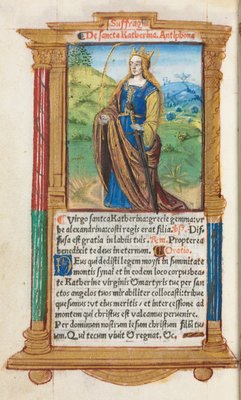 Suffrag
De sancta Katherina. Antiphona
Virgo sancta Katherina: grecie gemma: ur
be alexandrina costi regis erat filia. Ỹs. Dif
fusa est gratia in labiis tuis. Rem. Propterea
benedixit te deus in eternum. Oratio.
Deus qui dedisti legem moysi in summitate
montis synai et in eodem loco corpus bea
te Katherine virginis & martyris tue per san
ctos angelos tuos mirabiliter collocasti: tribue
quesumus: ut eius meritis et intercessione ad
montem qui christus est valeamus peruenire.
Per dominum nostrum iesum christum filiū tu
um. Qui tecum vivit & regnat. &c.